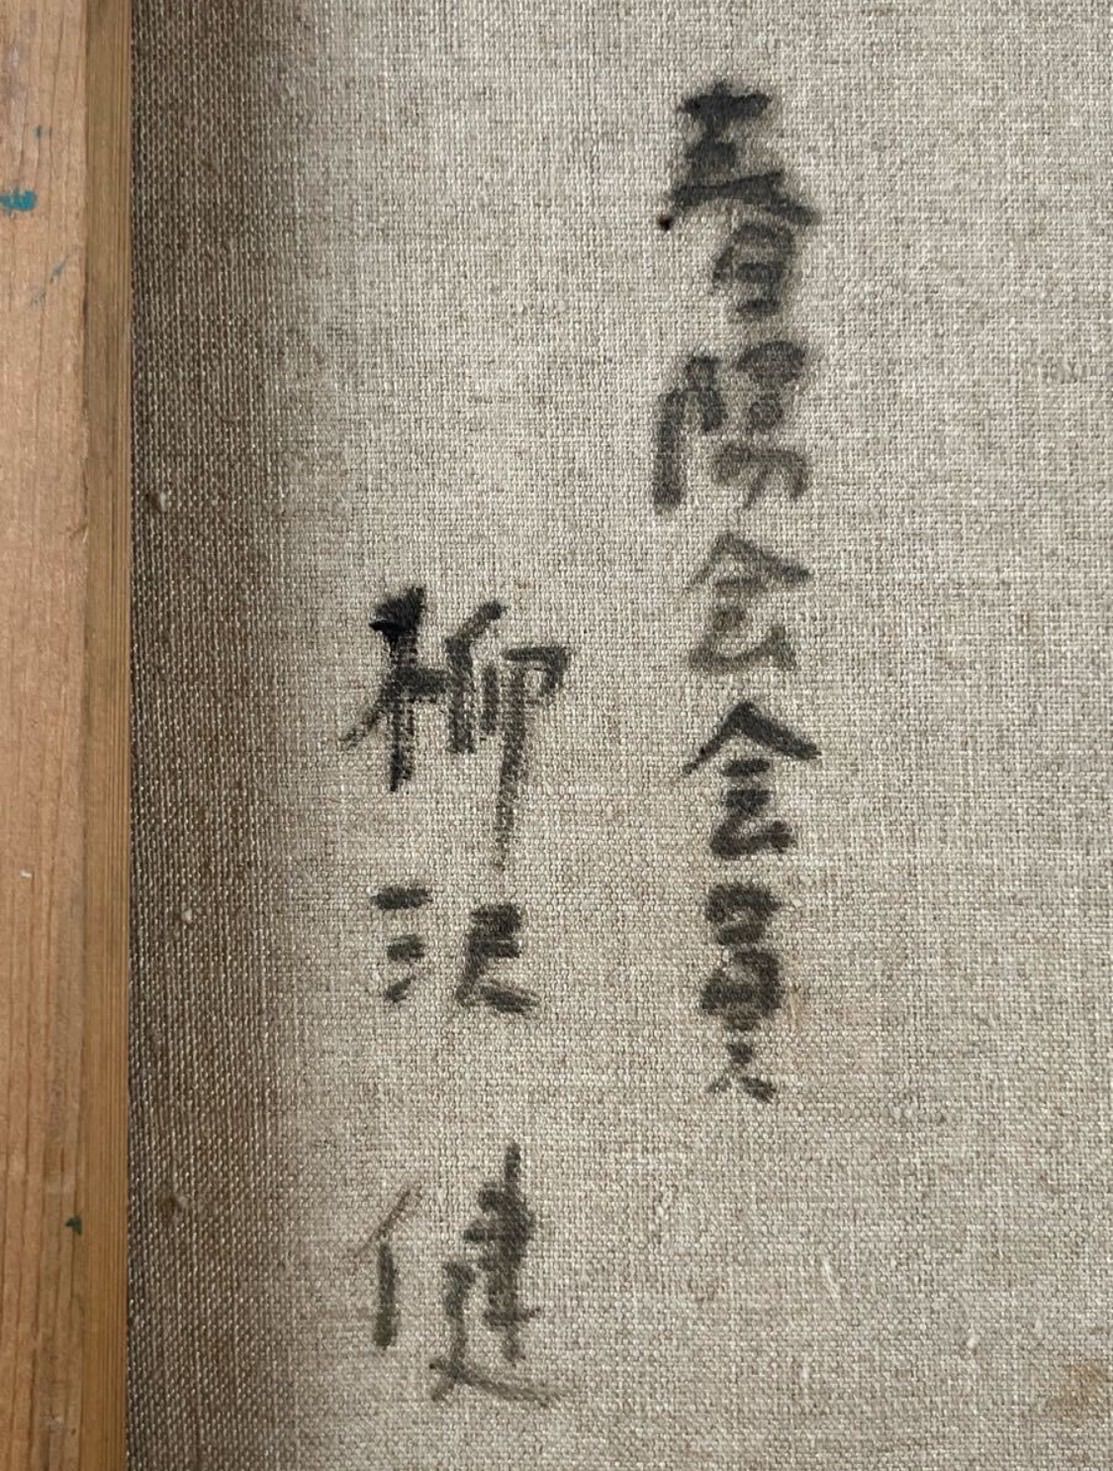 春陽会会員
柳沢健